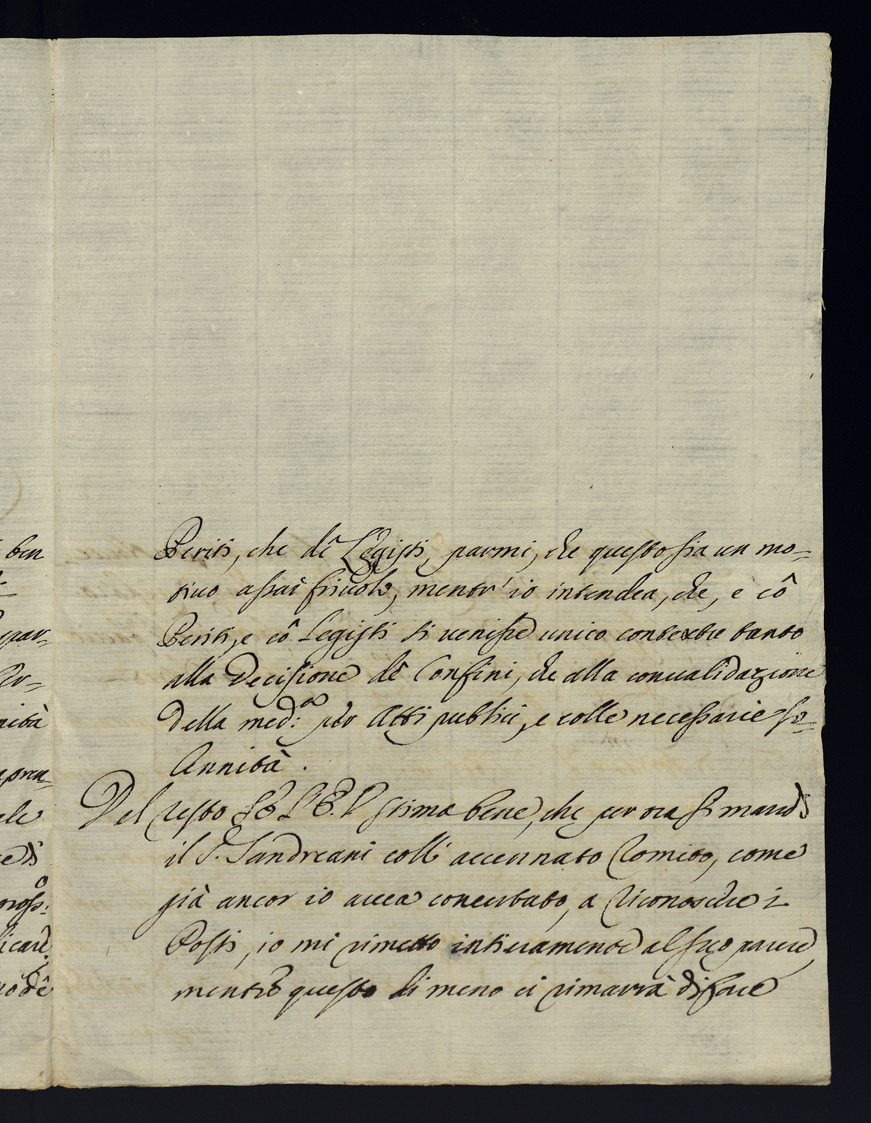 Periti, che dê Legisti, parmi, che questo sia un mo-
tivo assai frivolo, mentr' io intendea, che, e cô
Periti, e cô Legisti si venisse unico contextu tanto
alla Decisione dê Confini, che alla convalidazione
della med:ma per Atti publici, e colle necessarie so-
lennità.
Del resto se l'E. V. stima bene, che per ora si mandi
il S. Sandreani coll' accennato Comito, come
già ancor io avea concertato, a riconoscere i
Posti, io mi rimetto intieramente al suo parere,
mentre questo di meno ci rimarrà di fare
ben
par-
nità